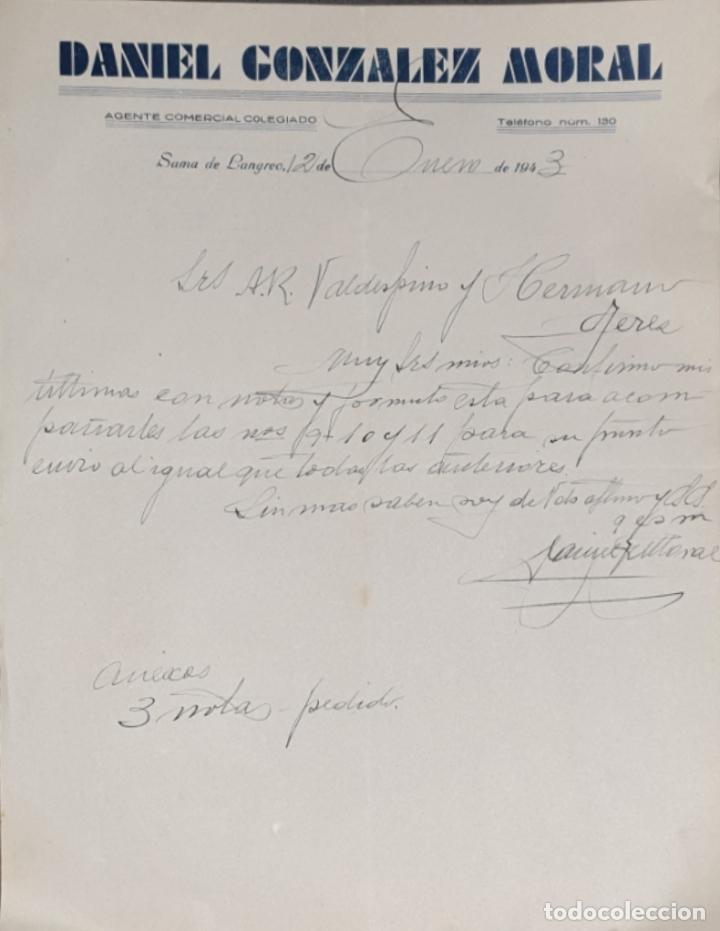 DANIEL GONZALEZ MORAL
AGENTE COMERCIAL COLEGIADO
Teléfono núm. 130
Sama de Langreo, 12 de Enero de 1943
Srs A.R. Valdespino y Hermano
Jerez
Muy Srs mios: Confirmo mis
últimas con notas y formulo esta para acom
pañarles las nos 9-10 y 11 para su pronto
envio al igual que todas las anteriores.
Sin mas saben soy de Vds afftmo y S.S.
q e s m
Daniel G Moral
Anexos
3 notas-pedido.
todocoleccion